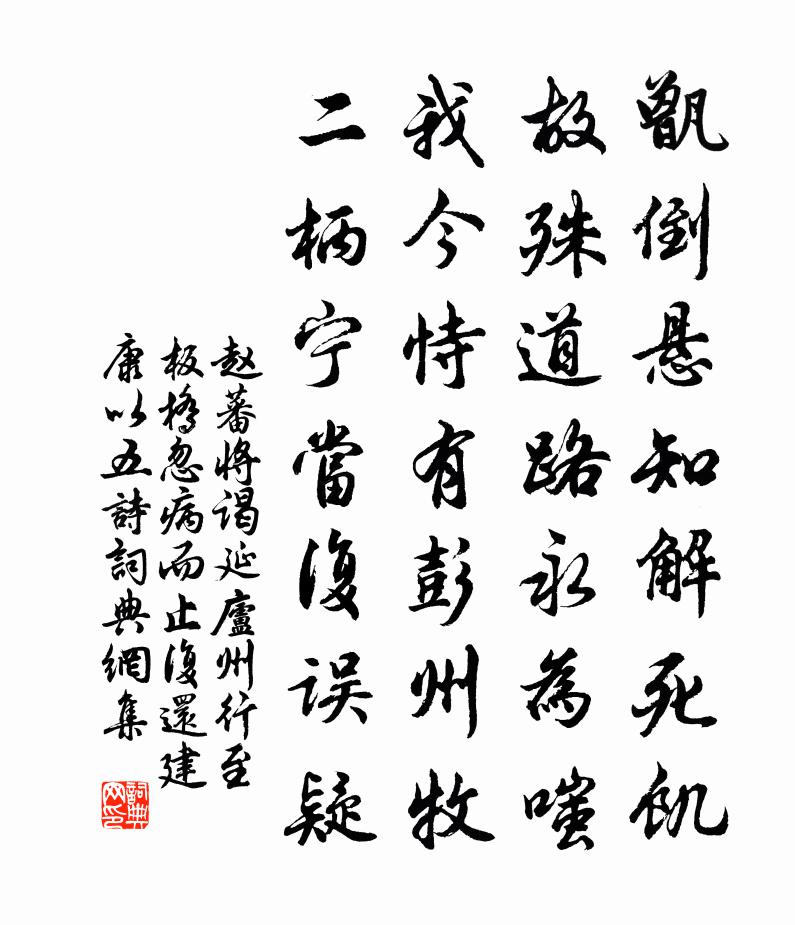 甑倒悬知解死飢
故殊道路永為嗤
我今恃有彭州牧
二柄宁當復误疑
赵蕃将谒延廬州行至
板橋忽病而止復還建
康以五詩詞典網集
詞典网印